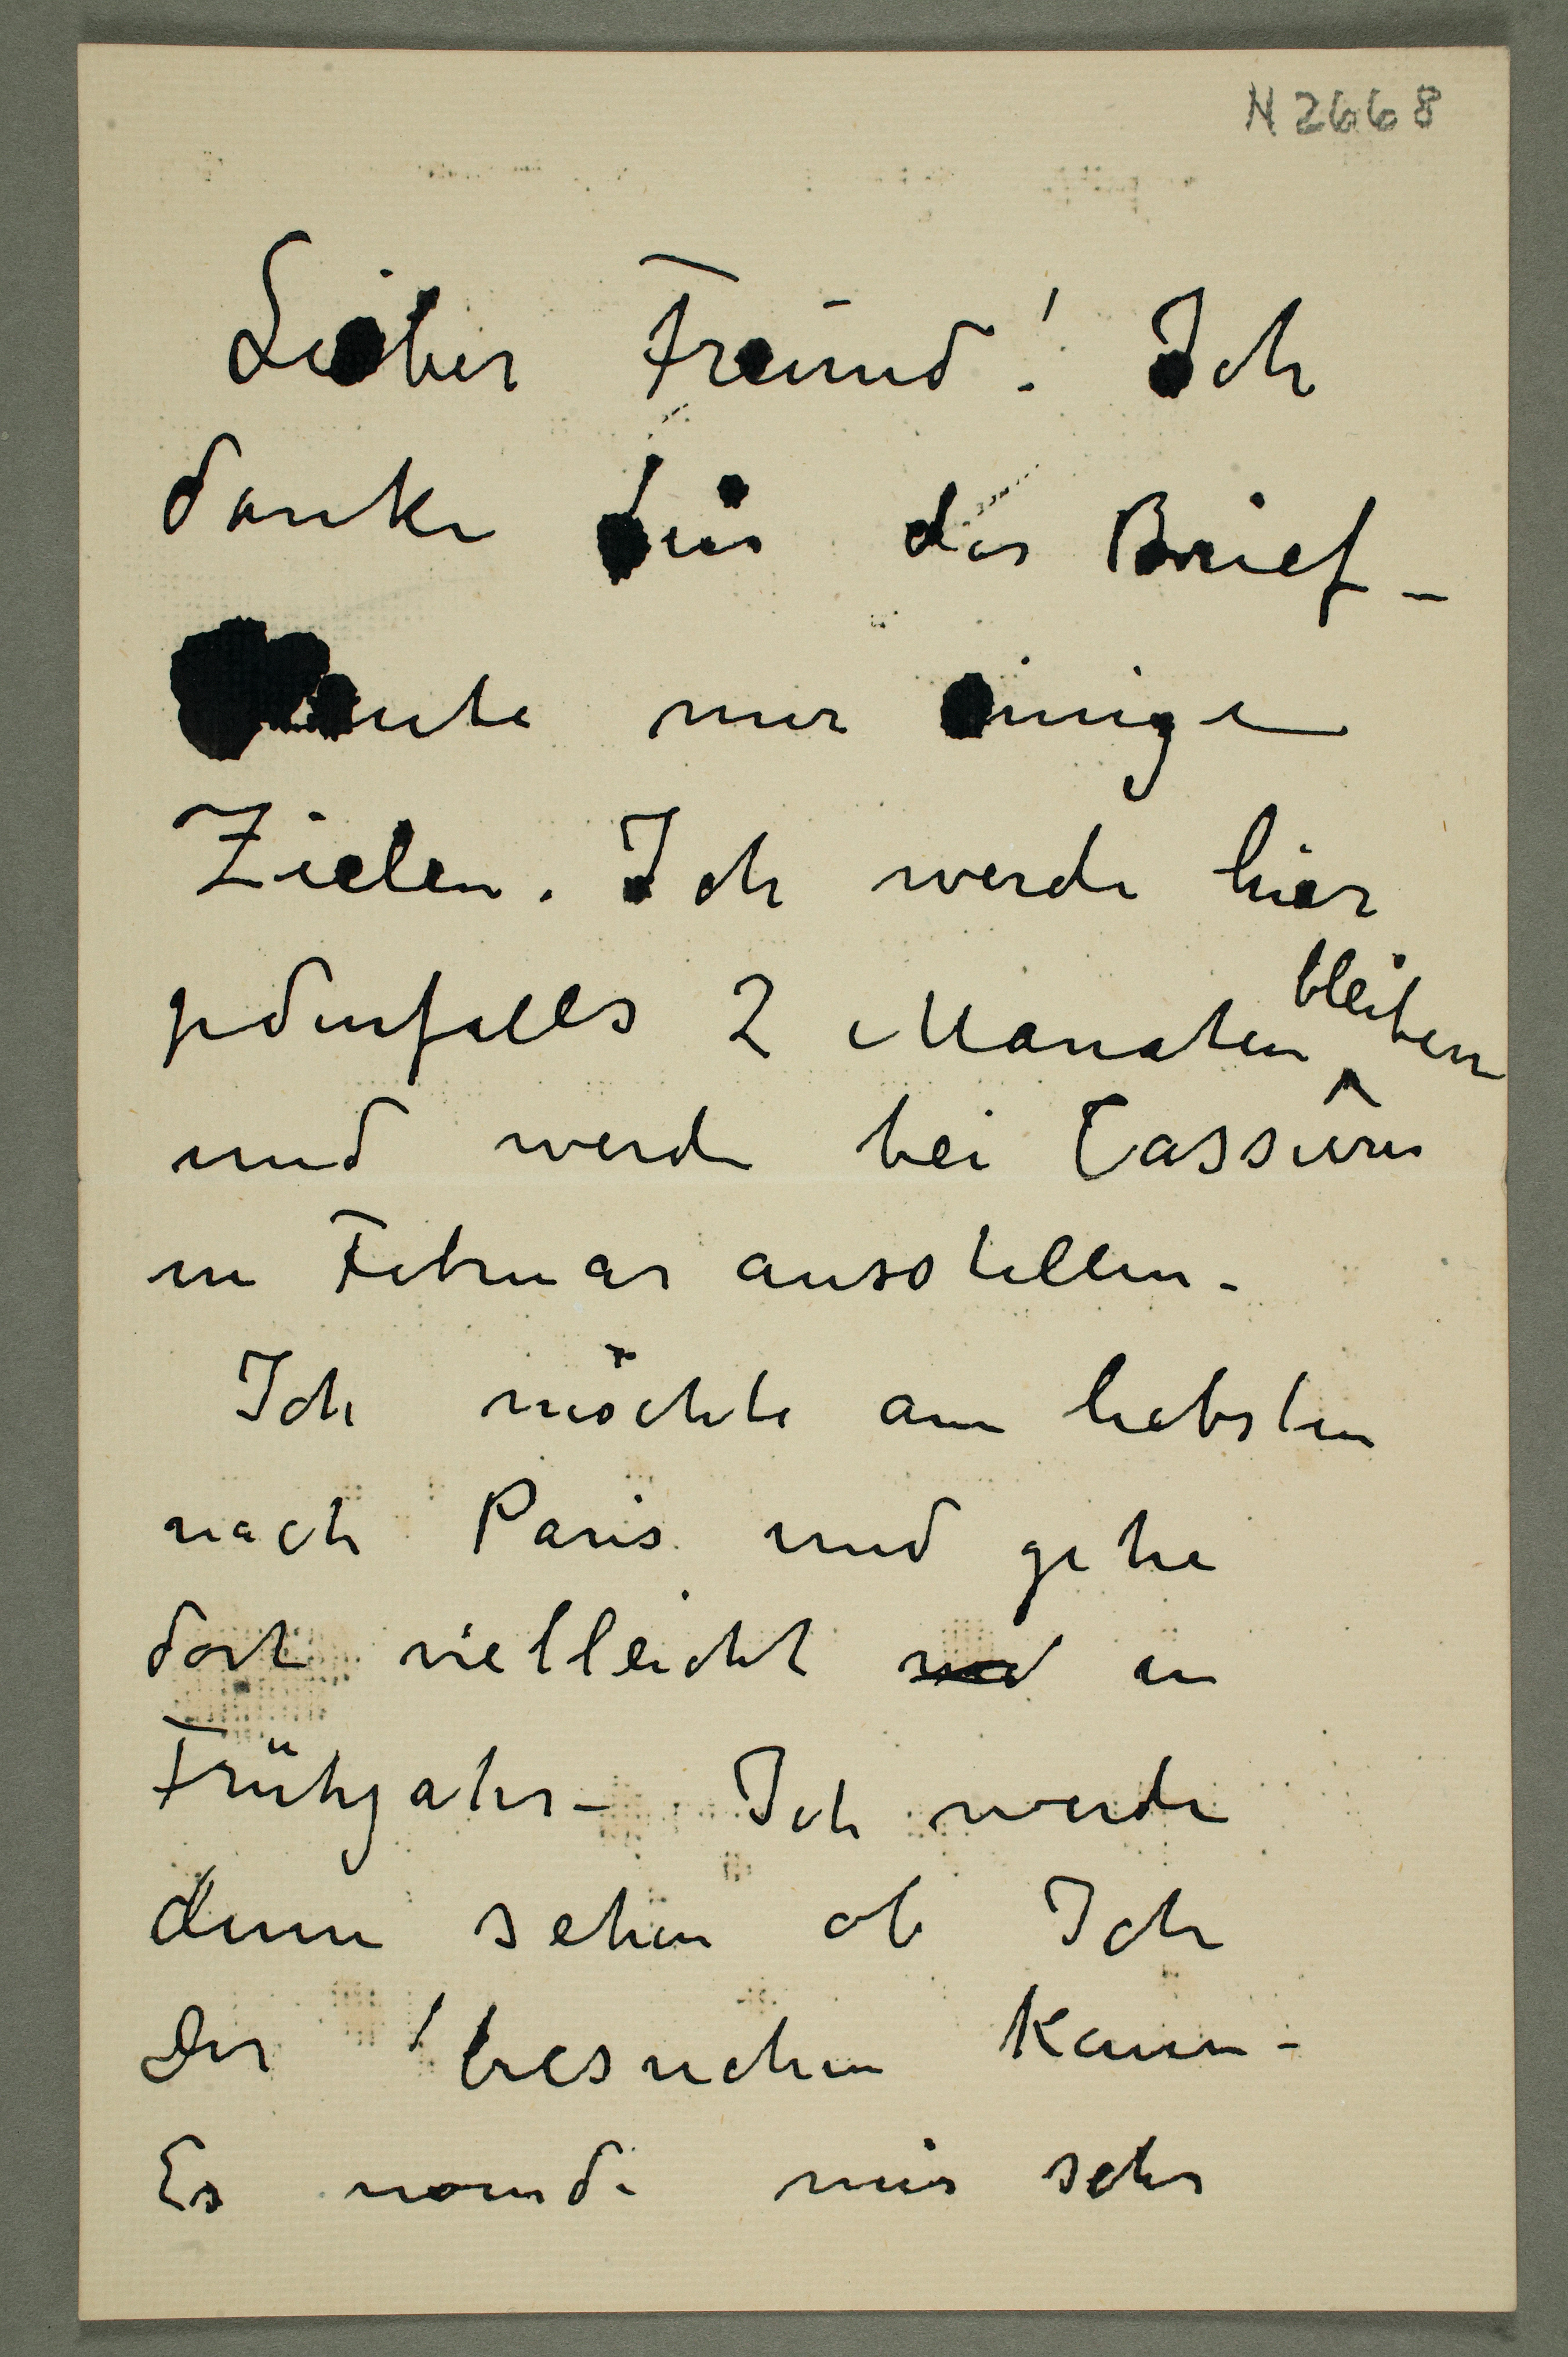 N 2668
Lieber Freund! Ich
danke für der Brief –
Heute nur einige
Zielen. Ich werde hier
jedenfalls 2 Monaten bleiben
und werde bei Cassirer
in Februar ausstellen –
Ich möchte am liebsten
nach Paris und gehe
dort vielleicht in
Frühjahr – Ich werde
denn sehen ob Ich
Der besuchen kann –
Es wurde mir sehr